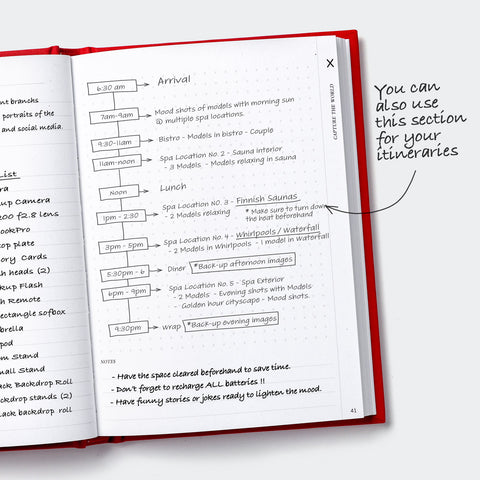 nt branchs
portraits of the
and social media.
List
ra
up Camera
200 f2.8 lens
ookPro
top plate
ory Cards
sh heads (2)
kup Flash
sh Remote
ectangle sofbox
brella
pod
m Stand
all Stand
ack Backdrop Roll
ackdrop stands (2)
lack backdrop roll
6:30 am Arrival
7am-9am Mood shots of models with morning sun
@ multiple spa locations.
9:30-11am Bistro - Models in bistro - Couple
11am-noon Spa Location No. 2 - Sauna interior
- 3 Models - Models relaxing in sauna
Noon Lunch
1pm - 2:30 Spa Location No. 3 - Finnish Saunas
- 2 Models relaxing * Make sure to turn down
the heat beforehand
3pm - 5pm Spa Location No. 4 - Whirlpools / Waterfall
- 2 Models in Whirlpools - 1 model in Waterfall
5:30pm - 6 Diner *Back-up afternoon images
6pm - 9pm Spa Location No. 5 - Spa Exterior
- 2 Models - Evening shots with Models
- Golden hour cityscape - Mood shots.
9:30pm Wrap *Back-up evening images
NOTES
- Have the space cleared beforehand to save time.
- Don't forget to recharge ALL batteries !!
- Have funny stories or jokes ready to lighten the mood.
41
X
CAPTURE THE WORLD
You can
also use
this section
for your
itineraries